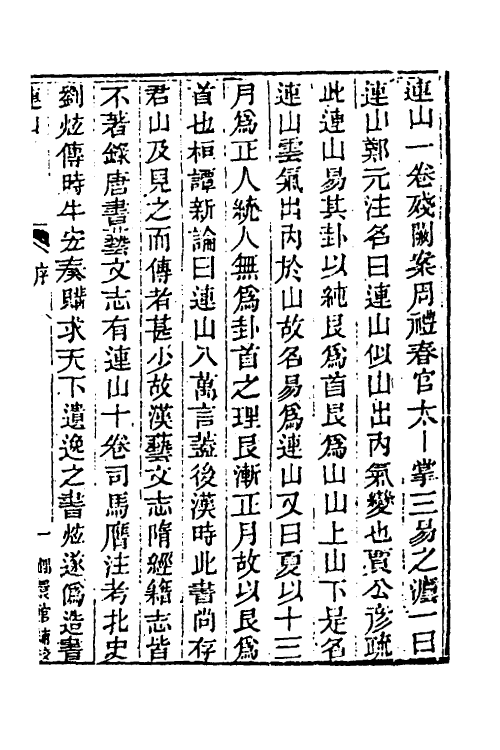 連山一卷殘闕案周禮春官太卜掌三易之灋一曰
連山鄭元注名曰連山似山出內氣變也賈公彥疏
此連山易其卦以純艮爲首艮爲山山上山下是名
連山雲氣出內於山故名易爲連山又曰夏以十三
月爲正人統人無爲卦首之理艮漸正月故以艮爲
首也桓譚新論曰連山八萬言蓋後漢時此書尚存
君山及見之而傳者甚少故漢藝文志隋經籍志皆
不著錄唐書藝文志有連山十卷司馬膺注考北史
劉炫傳時牛宏奏購求天下遺逸之書炫遂僞造書
連山
序
一
嬛館補校